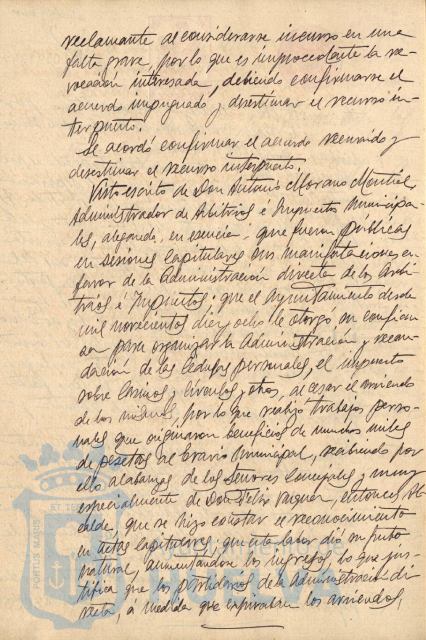 reclamante al considerarse incurso en una
falta grave, por lo que es improcedente la re-
vocación interesada, debiendo confirmarse el
acuerdo impugnado y desestimar el recurso in-
terpuesto.
Se acordó confirmar el acuerdo recurrido y
desestimar el recurso interpuesto.
Visto escrito de Don Antonio Morano Montiel,
Administrador de Arbitrios é Impuestos municipa-
les, alegando, en esencia: que fueron públicas
en sesiones capitulares sus manifestaciones en
favor de la Administración directa de los Arbi-
trios é Impuestos; que el Ayuntamiento desde
mil novecientos diez y ocho le otorgó su confian-
za para organizar la Administración y recau-
dación de las cédulas personales, el impuesto
sobre Casinos y Círculos y otros, al cesar el arriendo
de los mismos, por lo que realizó trabajos perso-
nales que originaron beneficios de muchos miles
de pesetas al erario municipal, recibiendo por
ello alabanzas de los señores Concejales, y muy
especialmente de Don Félix Vazquez, entonces Al-
calde, que se hizo constar el reconocimiento
en actas capitulares; que esta labor dió su fruto
natural, aumentándose los ingresos, lo que jus-
tifica que los partidarios de la Administración di-
recta, á medida que expiraban los arriendos,
PORTUS MARIS ET TE